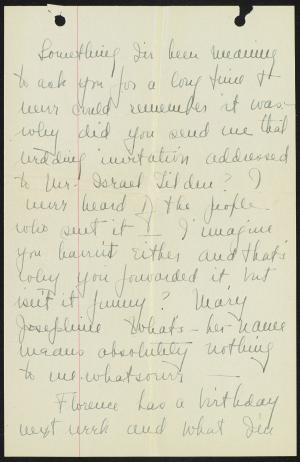 Something I've been meaning
to ask you for a long time &
never could remember it was -
why did you send me that
wedding invitation addressed
to Mr. Israel Tilden? I
never heard of the people
who sent it. I imagine
you haven't either and that's
why you forwarded it but
isn't it funny? Mary
Josephine What's-her-name
means absolutely nothing
to me whatsoever —
Florence has a birthday
next week and what I'd